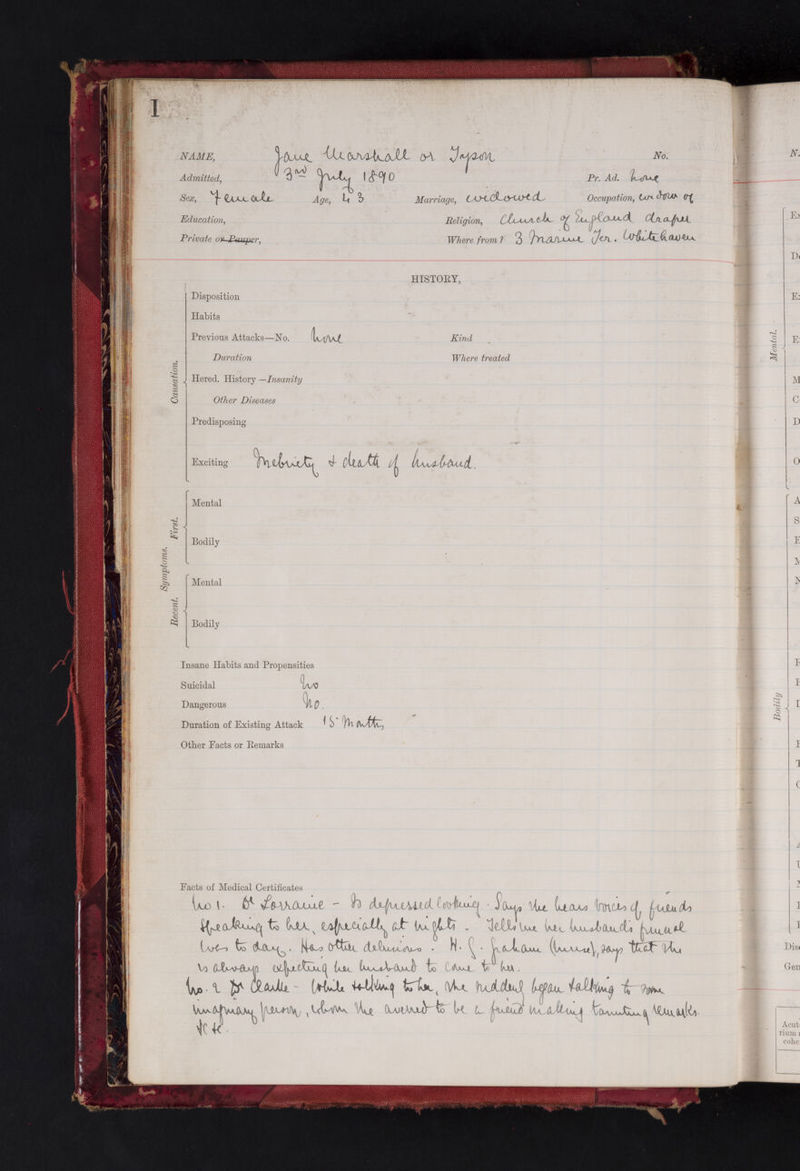 1
NAME, Jane Marshall or Tyson No.
Admitted, 3rd July 1890 Pr. Ad. none
Sex, Female Age, 43 Marriage, widowed Occupation, widow of
Education, Religion, Church of England draper
Private or Pauper, Where from? 3 Marine Ter. Whitehaven
HISTORY,
Disposition
Habits
Previous Attacks—No. none Kind
Duration Where treated
Causation.
Hered. History—Insanity
Other Diseases
Predisposing
Exciting Inebriety & death of husband.
Symptoms.
First.
Mental
Bodily
Recent.
Mental
Bodily
Insane Habits and Propensities
Suicidal no
Dangerous no.
Duration of Existing Attack 18 Months
Other Facts or Remarks
Facts of Medical Certificates
No 1. Dr Lorraine - Is depressed looking - Says she hears voices of friends
speaking to her, especially at nights - Tells me her husband's funeral
was to day. Has other delusions - H. G. Graham (nurse), says that she
is always expecting her husband to come to her.
No. 2 Dr Clarke - While talking to her, she suddenly began talking to some
imaginary person, whom she averred to be a friend making taunting remarks.
&c &c.
N.
Mental.
Bodily
Dis
Gen
Acut
rium
cohe